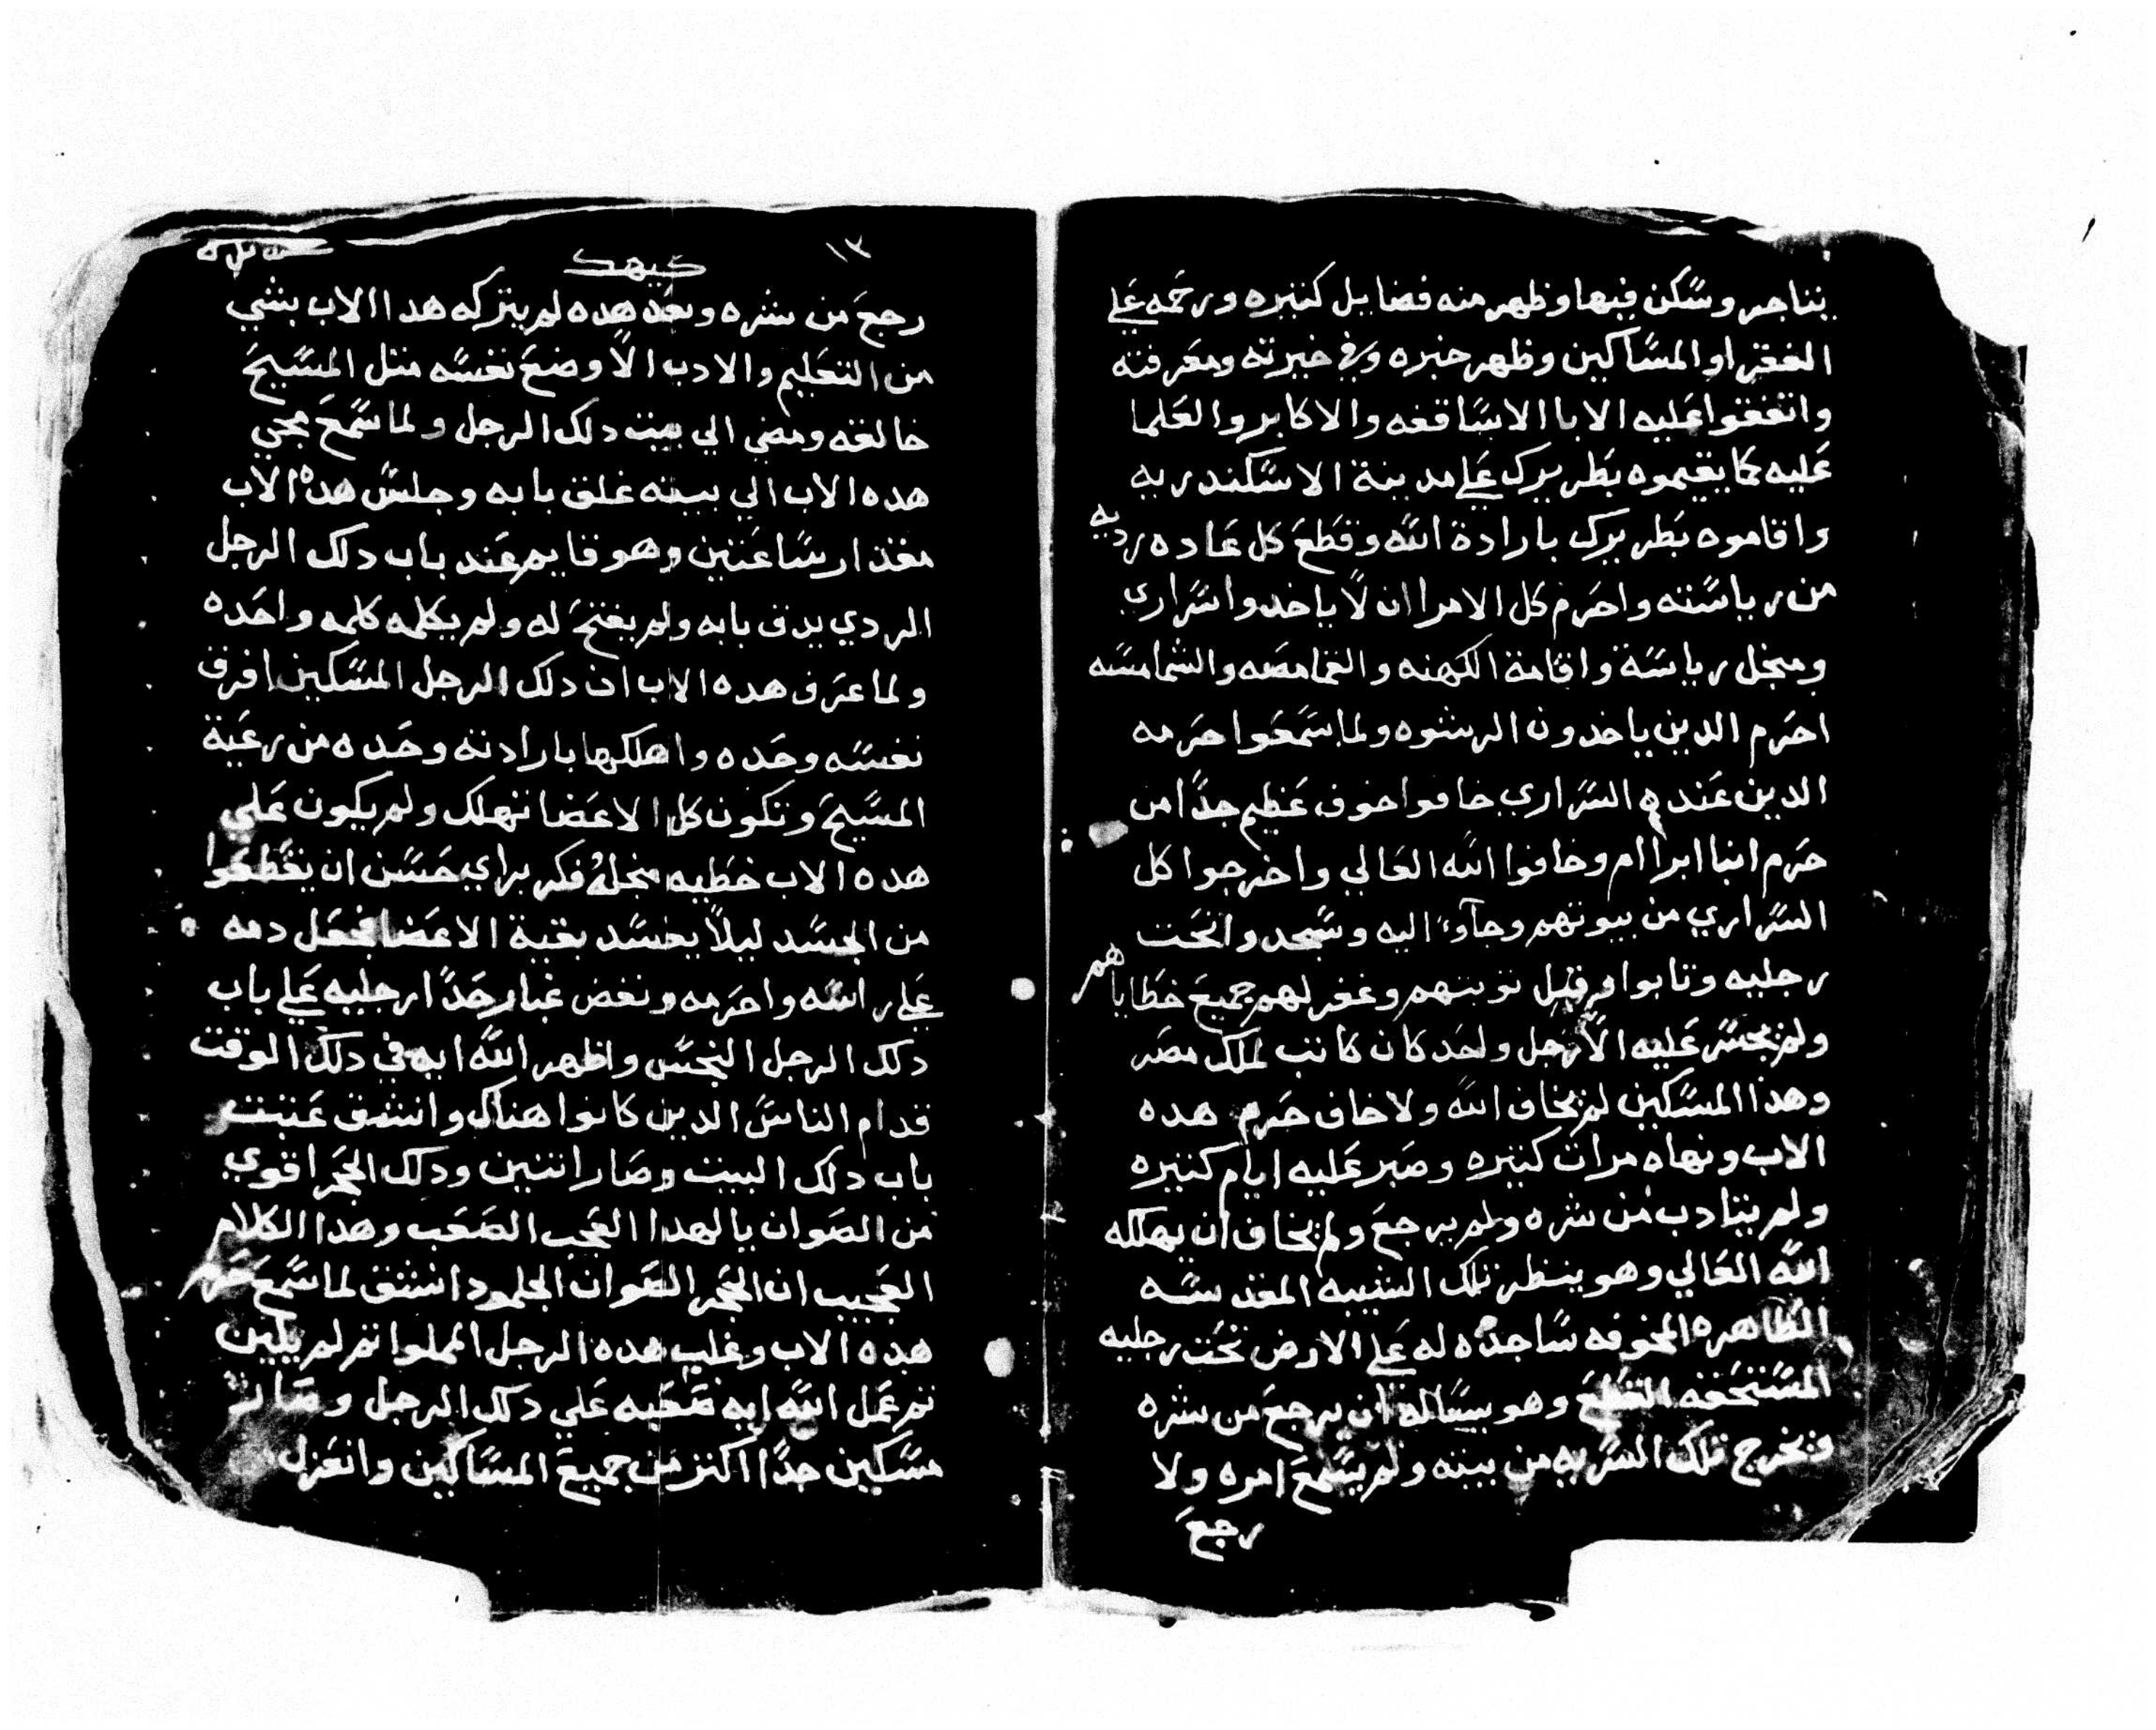 يتاجر وسكن فيها وظهر منه فضايل كتيره ورحمه علي
الفقرا والمساكين وظهر خبره وفي خبرته ومعرفته
واتفقوا عليه الابا الاساقفه والاكابر والعلما
عليه كما يقيموه بطريرك علي مدينة الاسكندريه
واقاموه بطريرك بارادة الله وقطع كل عاده رديه
من رياسته واحرم كل الامرا ان لا ياخدوا سراري
ومنجل رياسة واقامة الكهنه والقمامصه والشمامسه
احرم الدين ياخدون الرشوه ولما سمعوا حرمه
الدين عنده السراري خافوا خوف عظيم جدًا من
حرم انبا ابرام وخافوا الله العالي واخرجوا كل
السراري من بيوتهم وجآوء اليه وسجدوا تحت
رجليه وتابوا وقبل توبتهم وغفر لهم جميع خطاياهم
ولم يجسر عليه الا رجل واحد كان كاتب لملك مصر
وهذا المسكين لم يخاف الله ولا خاف حرم هده
الاب ونهاه مرات كتيره وصبر عليه ايام كتيره
ولم يتادب من شره ولم يرجع ولم يخاف ان يهلكه
الله العالي وهو ينظر تلك الشيبه المقدسه
الطاهره المخوفه ساجده له علي الارض تحت رجليه
المستحقه القطع وهو يساله ان يرجع من شره
وتخرج تلك السريه من بيته ولم يسمع امره ولا
رجع
١٣
كيهك
رجع من شره وبعد هده لم يتركه هدا الاب بشي
من التعليم والادب الا وضع نفسه متل المسيح
خالقه ومضي الي بيت دلك الرجل ولما سمع مجي
هده الاب الي بيته غلق بابه وجلس هده الاب
مقدار ساعتين وهو قايم عند باب دلك الرجل
الردي يدق بابه ولم يفتح له ولم يكلمه كلمه واحده
ولما عرف هده الاب ان دلك الرجل المسكين افرق
نفسه وحده واهلكها بارادته وحده من رعية
المسيح وتكون كل الاعضا تهلك ولم يكون علي
هده الاب خطيه منجله فكر براي حسن ان يقطعوا
من الجسد ليلاً يفسد بقية الاعضا فجعل دمه
علي راسه واحرمه ونفض غبار حدًا رجليه علي باب
دلك الرجل النجس واظهر الله ايه في دلك الوقت
قدام الناس الدين كانوا هناك وانشق عتبت
باب دلك البيت وصار اتنين ودلك الحجر اقوي
من الصوان يا لهدا العجب الصعب وهدا الكلام
العجيب ان الحجر الصوان الجلمود انشق لما سمع حرم
هده الاب وغلب هده الرجل المملوا اتم لم يلين
تم عمل الله ايه صعبه علي دلك الرجل وصار
مسكين جدًا اكتر من جميع المساكين وانعزل